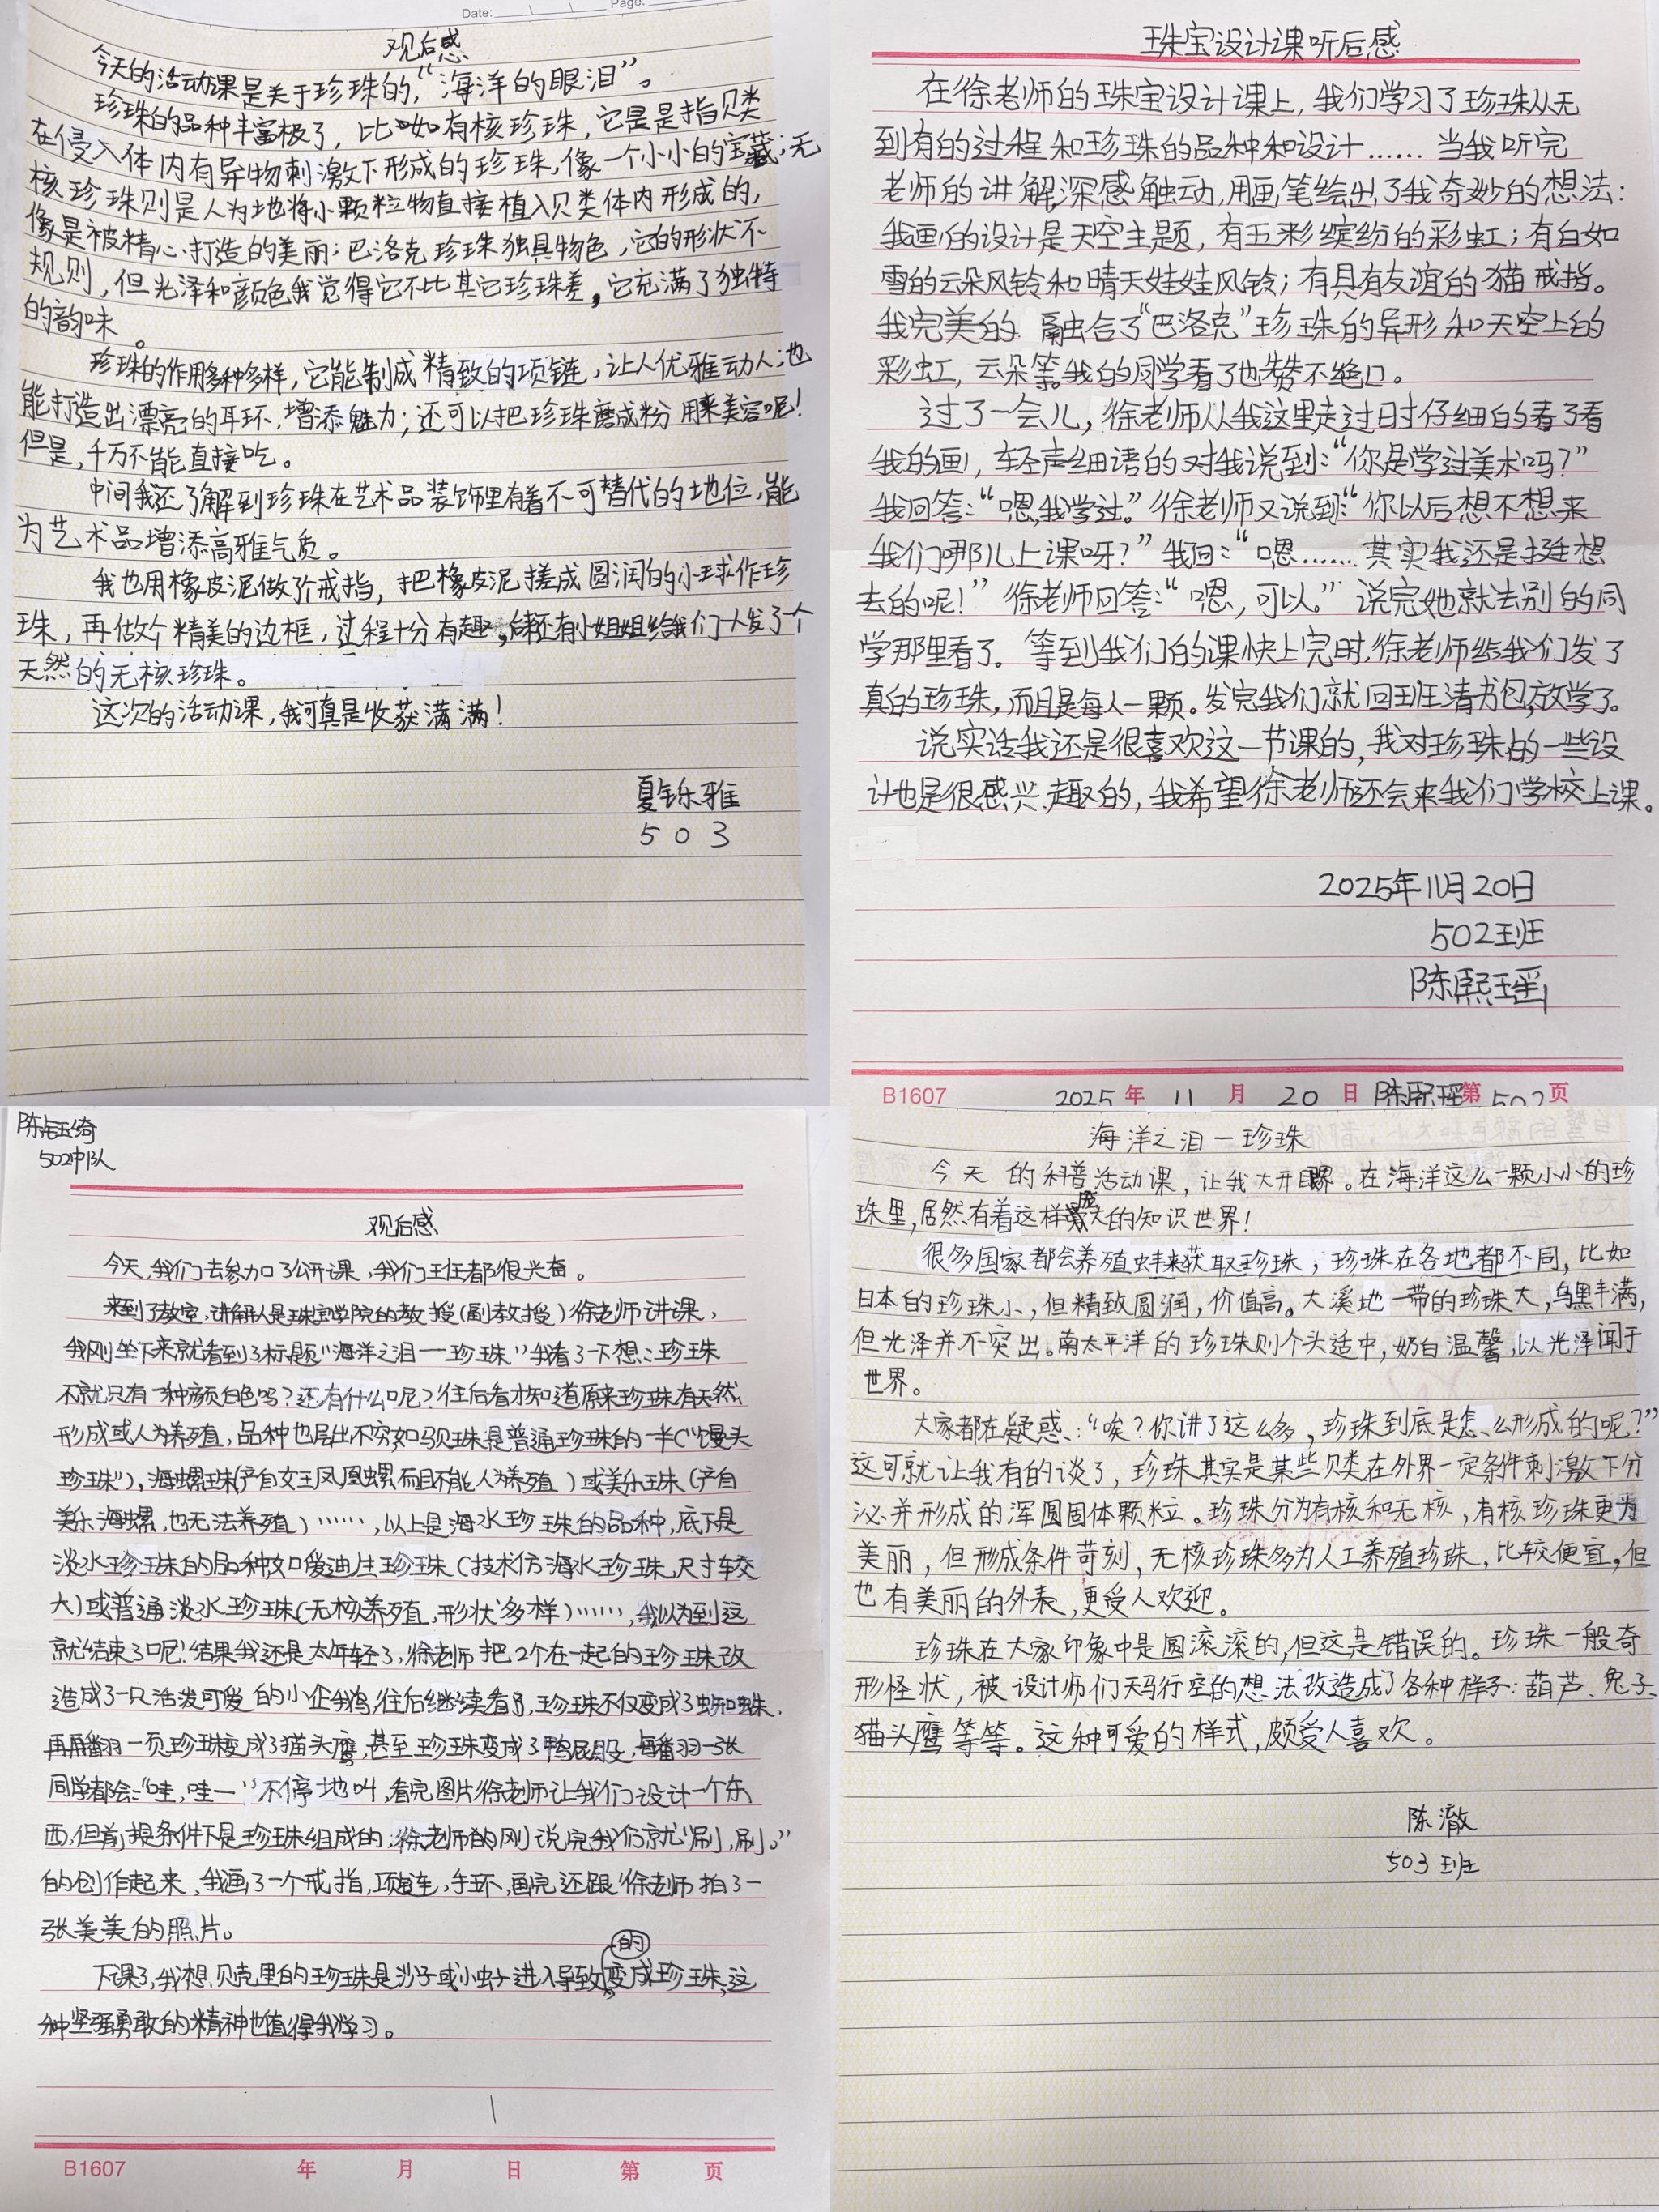 Date: Page:
观后感
今天的活动课是关于珍珠的,“海洋的眼泪”。
珍珠的品种丰富极了,比如有核珍珠,它是是指贝类
在侵入体内有异物刺激下形成的珍珠,像一个小小的宝藏;无
核珍珠则是人为地将小颗粒物直接植入贝类体内形成的,
像是被精心打造的美丽;巴洛克珍珠独具物色,它的形状不
规则,但光泽和颜色我觉得它不比其它珍珠差,它充满了独特
的韵味。
珍珠的作用多种多样,它能制成精致的项链,让人优雅动人;也
能打造出漂亮的耳环,增添魅力;还可以把珍珠磨成粉用来美容呢!
但是,千万不能直接吃。
中间我还了解到珍珠在艺术品装饰里有着不可替代的地位,能
为艺术品增添高雅气质。
我也用橡皮泥做了个戒指,把橡皮泥搓成圆润的小球作珍
珠,再做个精美的边框,过程十分有趣,后来还有小姐姐给我们一人发了一个
天然的无核珍珠。
这次的活动课,我可真是收获满满!
夏铄雅
503
珠宝设计课听后感
在徐老师的珠宝设计课上,我们学习了珍珠从无
到有的过程和珍珠的品种和设计……当我听完
老师的讲解,深感触动,用画笔绘出了我奇妙的想法:
我画的设计是天空主题,有五彩缤纷的彩虹;有白如
雪的云朵风铃和晴天娃娃风铃;有具有友谊的猫戒指。
我完美的融合了“巴洛克”珍珠的异形和天空上的
彩虹,云朵等。我的同学看了也赞不绝口。
过了一会儿,徐老师从我这里走过时仔细的看了看
我的画,轻声细语的对我说到:“你是学过美术吗?”
我回答:“嗯,我学过。”徐老师又说到:“你以后想不想来
我们哪儿上课呀?”我回:“嗯……其实我还是挺想
去的呢!”徐老师回答:“嗯,可以。”说完她就去别的同
学那里看了。等到我们的课快上完时,徐老师给我们发了
真的珍珠,而且是每人一颗。发完我们就回班清书包,放学了。
说实话我还是很喜欢这一节课的,我对珍珠的一些设
计也是很感兴趣的,我希望徐老师还会来我们学校上课。
2025年11月20日
502班
陈熙瑶
B1607 2025年 11月 20日 陈熙瑶第 502页
陈钰绮
502中队
观后感
今天,我们去参加了公开课,我们班都很兴奋。
来到了教室,讲解人是珠宝学院的教授(副教授)徐老师讲课,
我刚坐下来就看到了标题“海洋之泪——珍珠”我看了一下想:珍珠
不就只有一种颜白色吗?还有什么呢?往后看才知道原来珍珠有天然
形成或人为养殖,品种也层出不穷如马贝珠是普通珍珠的一半(“馒头
珍珠”),海螺珠(产自女王凤凰螺而且不能人为养殖)或美乐珠(产自
美乐海螺,也无法养殖)……,以上是海水珍珠的品种,底下是
淡水珍珠的品种如爱迪生珍珠(技术仿海水珍珠,尺寸较
大)或普通淡水珍珠(无核养殖,形状多样)……,我以为到这
就结束了呢!结果我还是太年轻了,徐老师把2个在一起的珍珠改
造成了一只活泼可爱的小企鹅,往后继续看,珍珠不仅变成了蜘蛛,
再翻一页珍珠变成了猫头鹰,甚至珍珠变成了鸭屁股,每翻一张
同学都会:“哇,哇—”不停地叫,看完图片徐老师让我们设计一个东
西,但前提条件下是珍珠组成的,徐老师的刚说完我们就“刷,刷。”
的创作起来,我画了一个戒指,项链,手环,画完还跟徐老师拍了一
张美美的照片。
下课了,我想,贝壳里的珍珠是沙子或小虫子进入导致的变成珍珠,这
种坚强勇敢的精神也值得我学习。
B1607 年 月 日 第 页
海洋之泪—珍珠
今天的科普活动课,让我大开眼界。在海洋这么一颗小小的珍
珠里,居然有着这样庞大的知识世界!
很多国家都会养殖蚌来获取珍珠,珍珠在各地都不同,比如
日本的珍珠小,但精致圆润,价值高。大溪地一带的珍珠大,乌黑丰满,
但光泽并不突出。南太平洋的珍珠则个头适中,奶白温馨,以光泽闻于
世界。
大家都在疑惑:“唉?你讲了这么多,珍珠到底是怎么形成的呢?”
这可就让我有的谈了,珍珠其实是某些贝类在外界一定条件刺激下分
泌并形成的浑圆固体颗粒。珍珠分为有核和无核,有核珍珠更为
美丽,但形成条件苛刻,无核珍珠多为人工养殖珍珠,比较便宜,但
也有美丽的外表,更受人欢迎。
珍珠在大家印象中是圆滚滚的,但这是错误的。珍珠一般奇
形怪状,被设计师们天马行空的想法改造成了各种样子:葫芦、兔子、
猫头鹰等等。这种可爱的样式,颇受人喜欢。
陈澈
503班